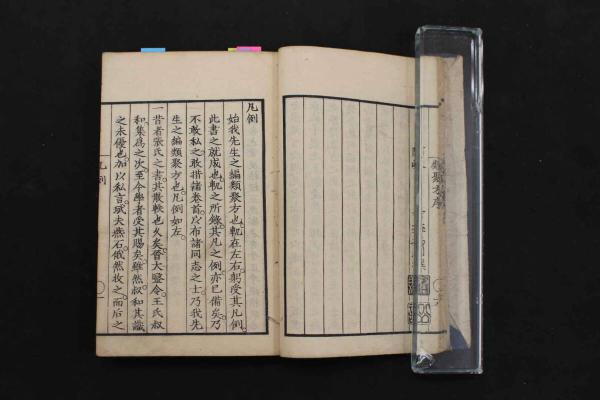 類聚方序
凡例
始我先生之編類聚方也軏在左右躬受其凡例
此書之就成也軏之所錄其凡之例亦已備矣乃
不敢私之敢揩諸卷首以布諸同志之士乃我先
生之編類聚方也凡例如左
一昔者張氏之書其散軼也久矣晉大醫令王氏叔
和集爲之次至今學者受其賜矣雖然叔和其識
之未優也加以私言珷夫燕石俄然收之而后之
凡例